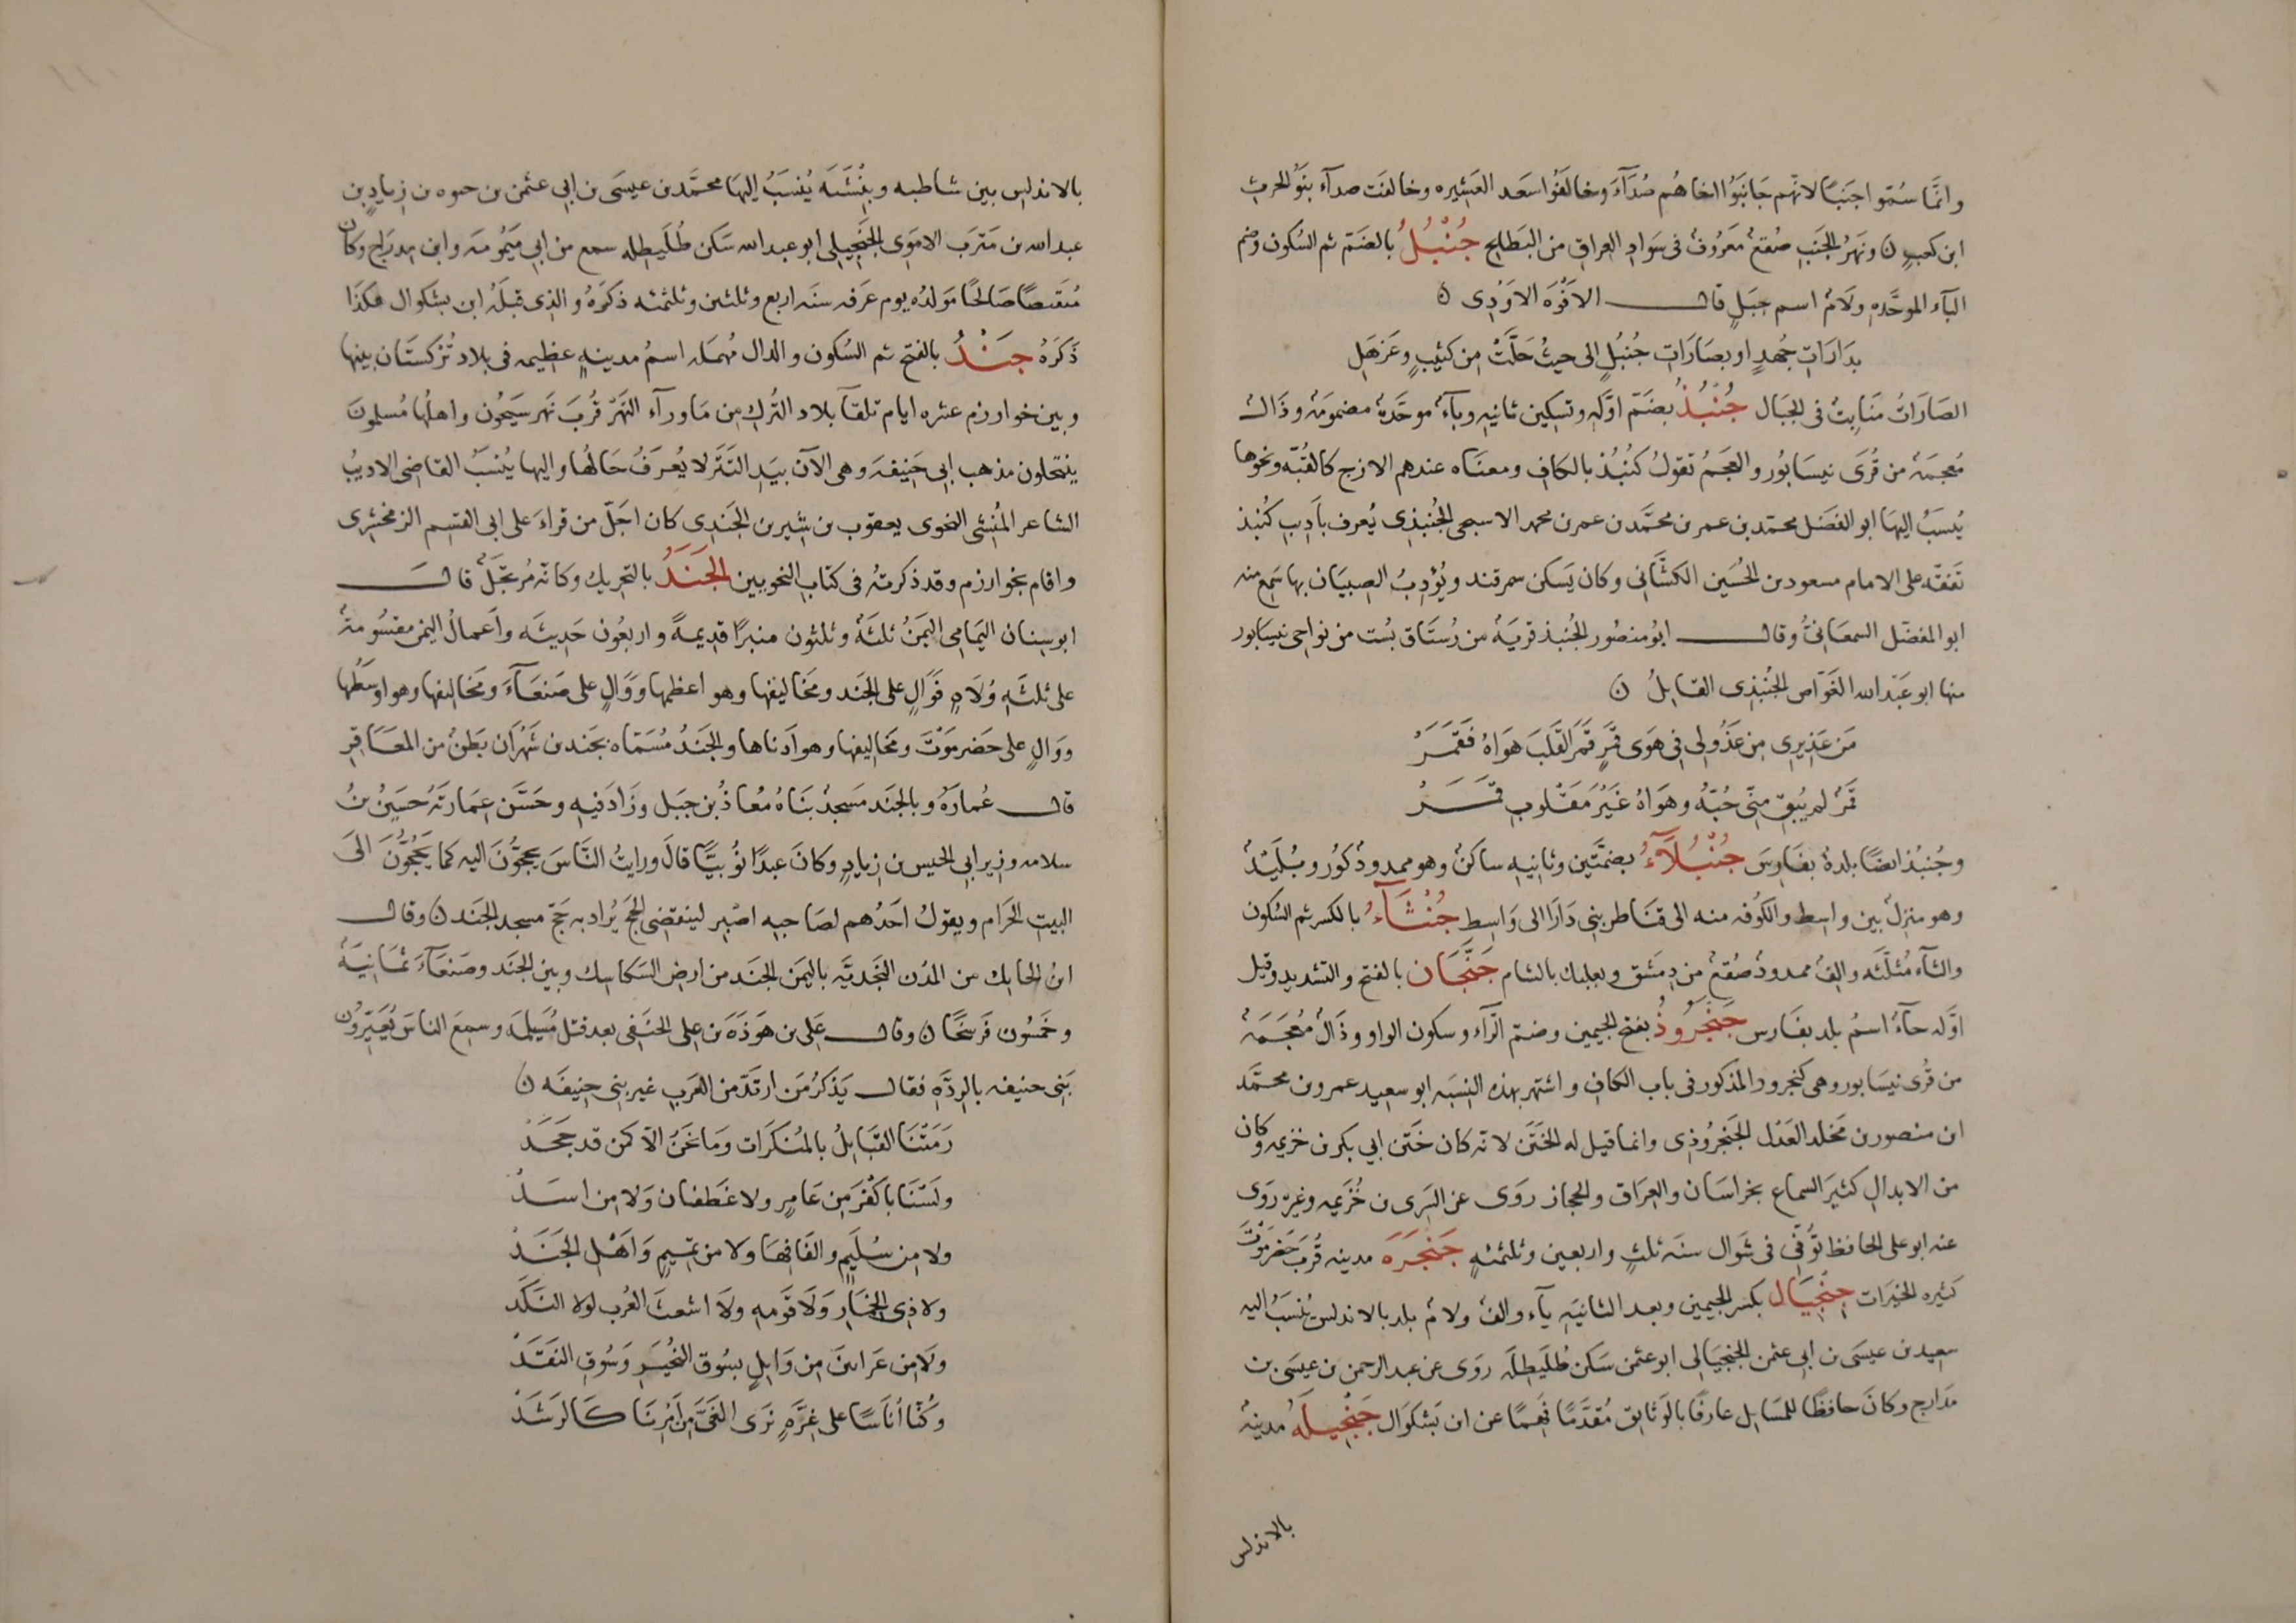 وانّما سُمّوا جَنْبًا لانّهم جَانَبُوا اخاهُم صُدَآءَ وخالَفُوا سَعد العَشِيره وخالفَت صدآء بنو الحرث
ابن كعبٍ ن ونَهرُ الجَنبِ صُقعٌ مَعرُوفٌ فى سَوادِ العراقِ من البَطايح جُنْبُلُ بالضَمّ ثم السُكون وضم
البآء الموحَّده ولَامٌ اسم جبَلٍ قال الافوَه الاَوْدِى ن
بدَارَاتِ جُهدٍ او بصَارَاتِ جُنبُلٍ الى حيثُ حَلَّتْ من كثيبٍ وعَزهَلِ
الصَارَاتُ مَنَابِتُ فى الجبَال جُنْبُذُ بضَمّ اوّلِه وتسكين ثانيه وبآءٌ موحَّدةٌ مضمومَةٌ وذَالٌ
مُعجمَةٌ من قُرَى نيسَابُور والعجَمُ تقولُ كُنبُذ بالكاف ومعنَاه عندهم الازج كالقبّه ونحوها
يُنسَبُ اليهَا ابو الفضَل محمّد بن عمر بن محمَّد بن عمر بن محمد الاسبحى الجُنبذِى يُعرف باَدِيب كُنبذ
تَفقّه على الامام مسعود بن الحُسَين الكشَّانى وكان يَسكن سمرقند ويُؤدِبُ الصِبيَان بها سَمِع منه
ابو المفضّل السمعَانىُّ وقال ابُو منصُور الجُنبذ قريَةٌ من رُستَاق بُست من نواحى نيسَابور
منها ابو عَبَد الله الغَوّاص الجُنبُذِى القايلُ ن
مَن عَذِيرِى مِن عَذُولى فى هوَى قمَرٍ قَمَر القَلبَ هوَاهُ فقَمَرَ
قَمَرٌ لم يُبقِ مِنّى حُبّهُ وهَوَاهُ غَيرُ مَقْلوبِ قَمَرُ
وجُنبُذ ايضًا بلدةٌ بفَارِسَ جُنْبُلَآءُ بضمَّتَين وثانيه ساكنٌ وهو ممدودٌ كُور وبُلَيدٌ
وهو منزِلٌ بين واسِط والكُوفه منه الى قنَاطر بنى دَارَا الى وَاسِط جُنْثَآءُ بالكسر ثم السُكون
والثآء مُثلّثه والِفٌ ممدودٌ صُقعٌ من دِمَشق وبعلبك بالشام جَنَّجَان بالفتح والتشديد وقيل
اوّله حآءٌ اسمُ بلد بفَارس جَنْجَرُوذُ بفتح الجيمين وضمّ الرّآء وسكون الواو وذَالٌ مُعجَمَةٌ
من قُرى نيسَابور وهى كنجرود المذكور فى باب الكاف واشتهر بهذه النِسبَه ابو سعيد عمرو بن محمَّد
ابن منصور بن مَخلد العَدل الجَنجرُوذِى وانما قيل له الخَتَن لانّه كان خَتَن ابى بكر بن خزيمه وكان
من الابدالِ كثيرَ السماع بخراسَان والعِرَاق والحجاز روَى عن السَرِى بن خُزَيمه وغيره روَى
عنه ابو على الحافظ تُوفّى فى شَوال سنَه ثلثٍ واربعين وثلثمئه جَنْجَرَه مدينه قُربَ حَضرمَوْتَ
كثيره الخيرَات جِنْجِيَال بكسر الجيمين وبعد الثانيَه يآء والفٌ ولامٌ بلد بالاندلس يُنسَبُ اليه
سعيد بن عيسَى بن ابى عثمن الجنجيَالى ابو عثمن سَكَن طُلَيطِلَه روَى عن عبد الرحمن بن عيسَى بن
مَدارج وكانَ حافظًا للمسَايل عارفًا بالوَثايق مُقدَّمًا فَهِمًا عن ابن بَشكوَال جَنْجِيلَهُ مدينهٌ
بالاندلس
بالاندلس بين شاطبه وبِنِشتَه يُنسَبُ اليهَا محمَّد بن عيسَى بن ابى عثمن بن حيوه بن زيادِ بن
عبد الله بن مَترَب الامَوِى الجنجيلى ابو عبد الله سَكن طُلَيطِله سمع من ابى مَيمُونه وابن مدرَاج وكان
مُتقبضًا صَالحًا مَولدُه يوم عَرَفه سنَه اربع وثلثين وثلثمئه ذكَرَهُ والذى قبلَهُ ابن بشكوال هكذَا
ذَكَرَهُ جَنْدُ بالفتح ثم السُكون والدال مُهمَله اسمُ مدينهٍ عظيمه فى بلاد تُركستَان بينها
وبين خوارزم عشره ايام تلقآ بلاد التُرك من مَا ورآء النَهر قُربَ نَهر سَيحُون واهلُها مُسلمونَ
ينتحلون مذهب ابى حَنيفه وهى الآن بيَدِ التَتَر لا يُعرَفُ حَالُها واليها يُنسَبُ القاضى الاديبُ
الشاعر المُنشِى النحوى يعقوب بن شيرين الجَندِى كان اجَلّ من قراءَ على ابى القسم الزمخشرى
واقام بخوارزم وقد ذكرتُه فى كتاب النحويين الجَنَدُ بالتحريك وكانّه مُرتجَلٌ قال
ابو سِنان اليمَامى اليَمَنُ ثلثَةٌ وثلثون منبرًا قديمةً واربعُون حَديثَه واَعمالُ اليمَن مقسُومةٌ
على ثلثَه وُلَاهٍ فوَالٍ على الجَند ومخَاليفها وهو اعظمها ووَالٍ على صَنعَآءَ ومخَاليفها وهو اوسَطُها
ووَالٍ على حَضرمَوْتَ ومخَاليفها وهو اَدناها والجَندُ مُسَمّاه بجَند بن شَهرَان بَطنٌ من المعَافِر
قال عُمارَهُ وبالجَند مَسجدٌ بنَاهُ مُعاذُ بن جبَل وزَادَ فيه وحَسَّن عِمَارتَهُ حسَينُ بنُ
سلامه وزير ابى الجيش بن زيادٍ وكانَ عبدًا نُوبيًّا قالَ ورايتُ النَّاسَ يحجُّونَ اليه كما يَحُجُّونَ الىَ
البيتِ الحرَام ويقولُ احَدُهم لصَاحبه اصْبِر لينقضى الحج يُرادُ به حَجّ مسجد الجَند ن وقال
ابنُ الحايك من المُدُن النَجديّه باليمَن الجَند من ارض السَكاسِك وبين الجَند وصَنعَآءَ ثمَانِيَهٌ
وخمَسُون فَرسخًا ن وقال عَلى بن هَوذَه بن على الحنَفى بعد قتل مُسَيلمه وسمِعَ الناسَ يُعَيّرُون
بَنى حنيفه بالرِدَّهِ فقال يَذكرُ مَن ارتَدّ من العَربِ غير بنى حنيفه ن
رَمَتْنَا القبَايلُ بالمُنكَرَات ومَا نحَنُ الّا كمن قد جحَدَ
ولسْنَا باَكْفَرَ مِن عَامِرٍ ولا غطَفان وَلا مِن اسَدْ
ولا مِن سُلَيمٍ والفَافِهَا ولا من تميمٍ وَاَهْل الجَنَدْ
ولا ذِى الخِمَارِ وَلَا قَومِهِ ولَا اشعثَ العُربِ لولا النَكَدْ
ولَا مِن عَرَانينَ مِن وَايلٍ بسُوقِ النُجَيرِ وَسُوقِ النقَدْ
وكُنّا اُنَاسًا على غِرَّهٍ نَرَى الغَىَّ مِن اَمْرِنَا كَالرَشَدْ